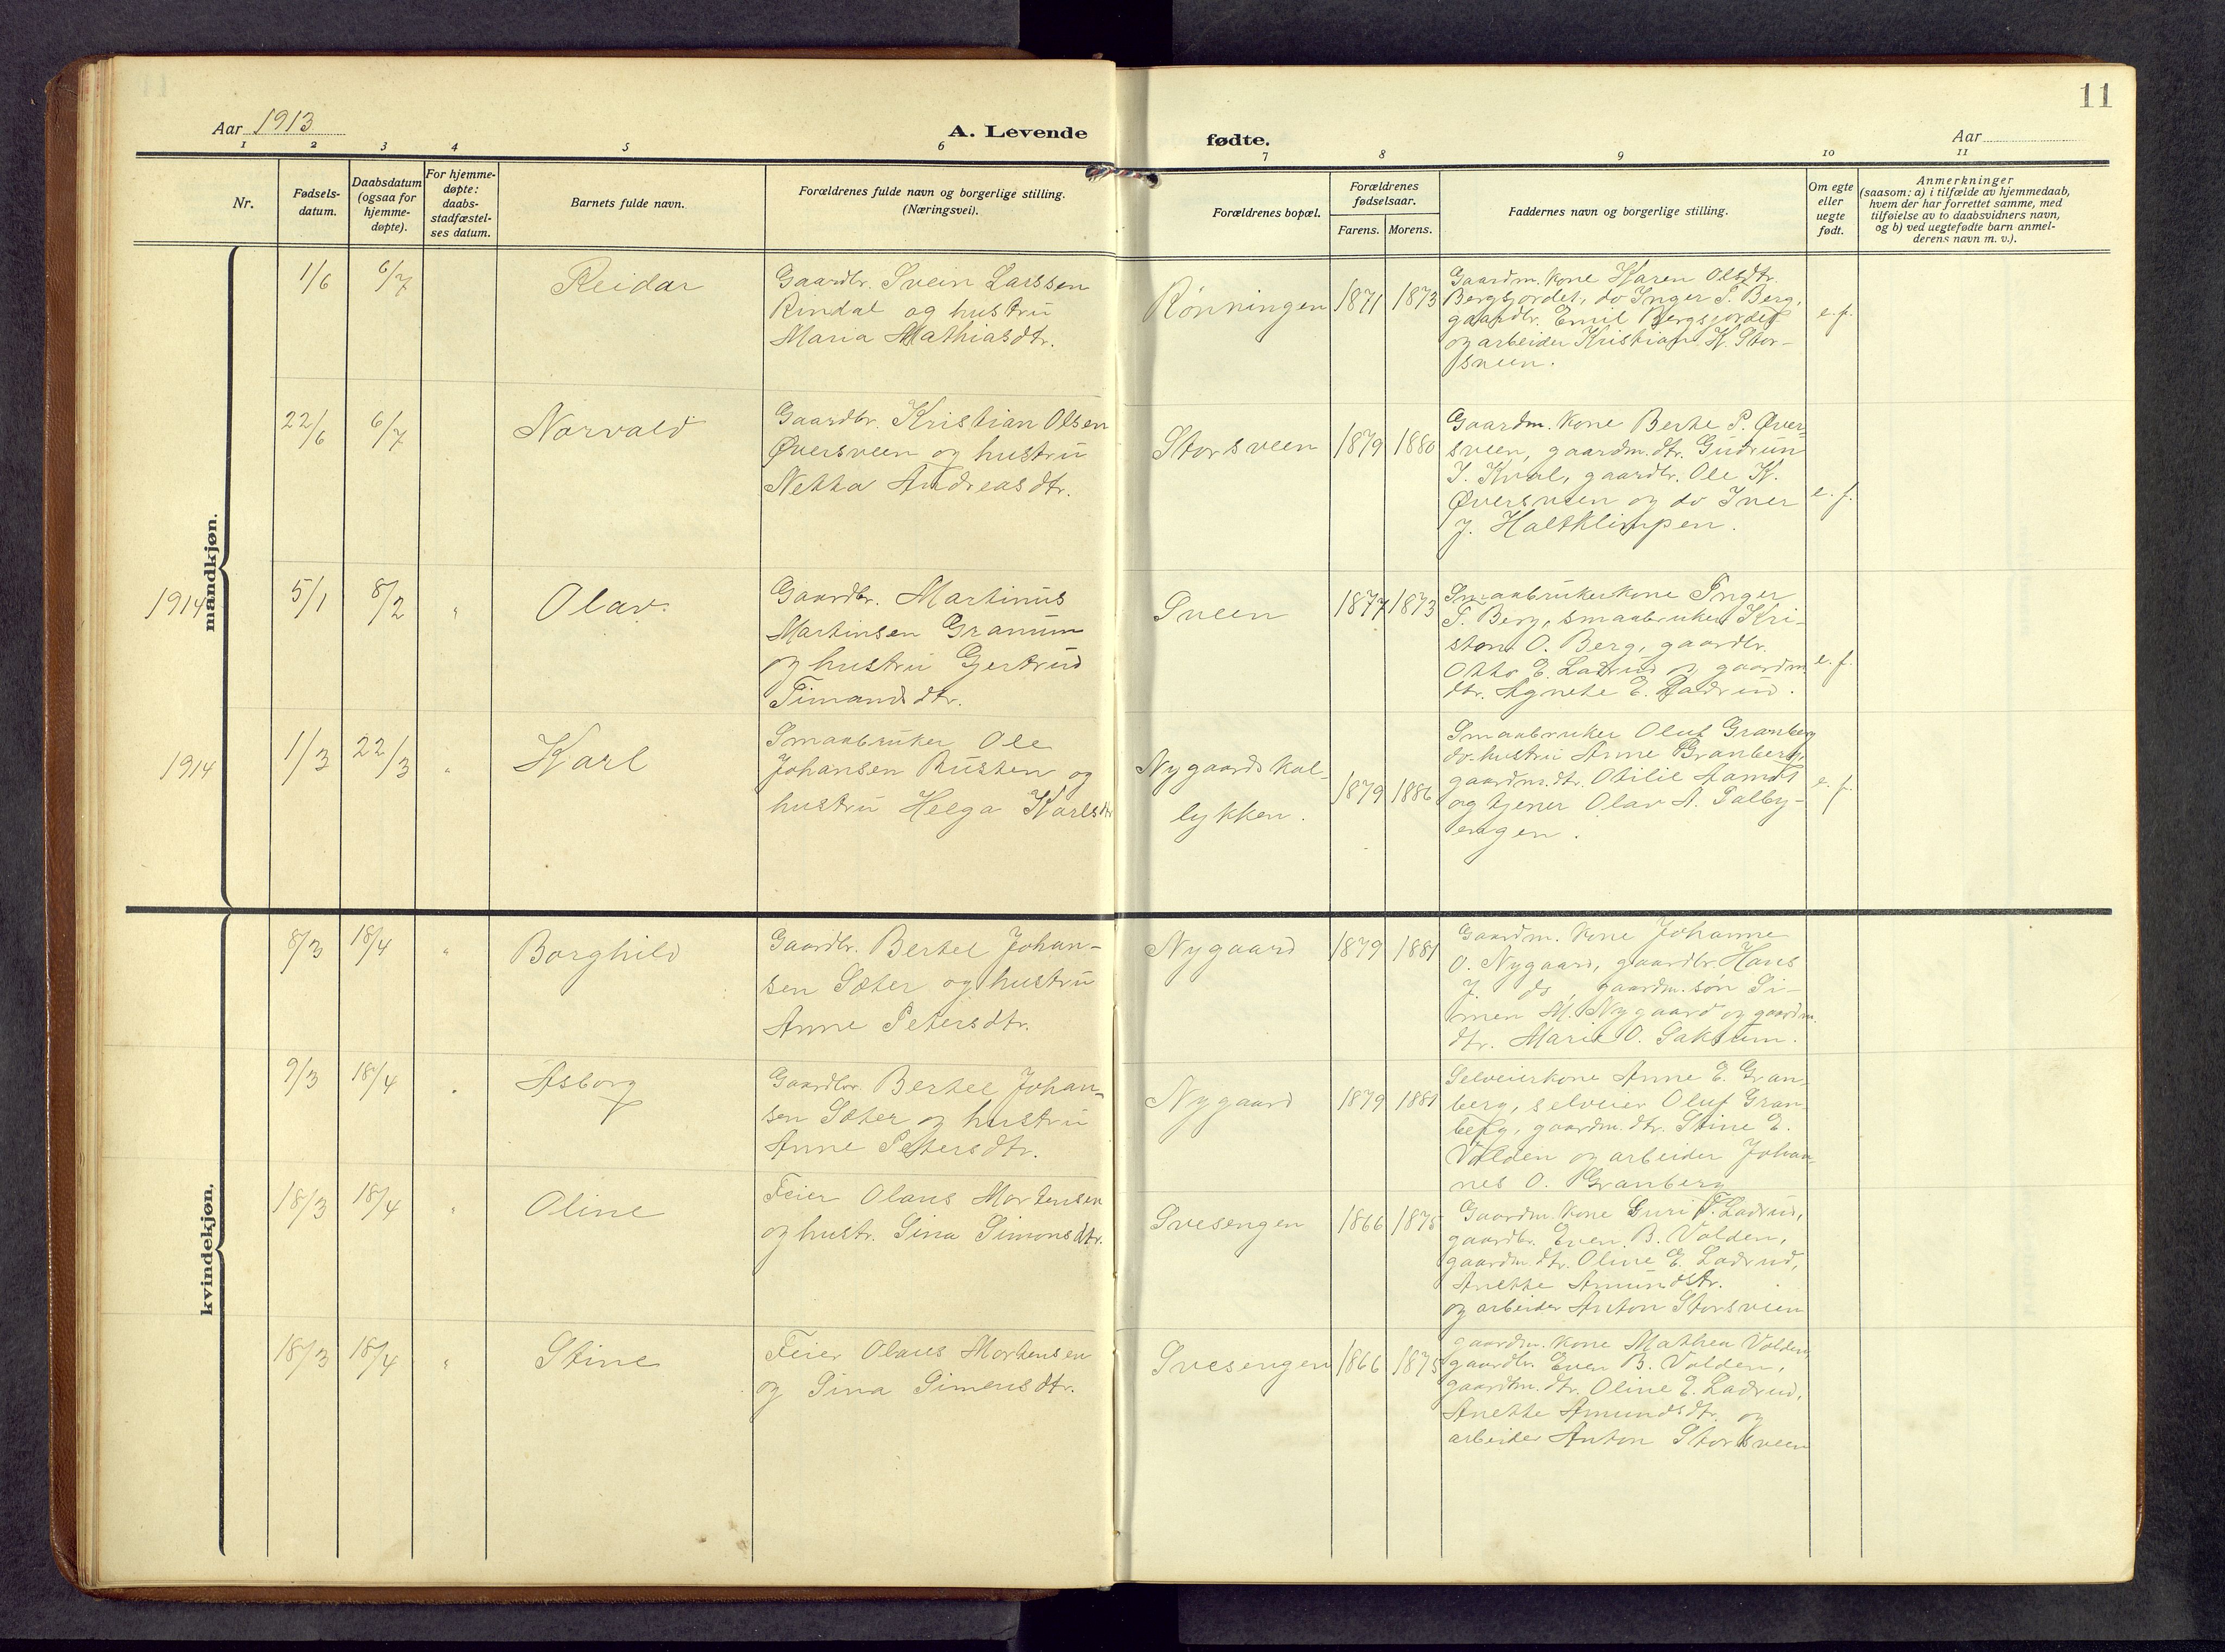 11
Aar 1913
A. Levende
fødte.
Aar
1 2 3 4 5 6 7 8 9 10 11
Nr.
Fødsels-
datum.
Daabsdatum
(ogsaa for
hjemme-
døpte).
For hjemme-
døpte:
daabs-
stadfæstel-
ses datum.
Barnets fulde navn.
Forældrenes fulde navn og borgerlige stilling.
(Næringsvei).
Forældrenes bopæl.
Forældrenes
fødselsaar.
Farens. Morens.
Faddernes navn og borgerlige stilling.
Om egte
eller
uegte
født.
Anmerkninger
(saasom: a) i tilfælde av hjemmedaab,
hvem der har forrettet samme, med
tilføielse av to daabsvidners navn,
og b) ved uegtefødte barn anmel-
derens navn m. v.).
mandkjøn.
1/6 6/7
Reidar
Gaardbr. Svein Larssen
Rindal og hustru
Maria Mathiasdtr.
Rønningen
1871 1873
Gaardm. kone Karen Olsdtr.
Bergsjordet, do Inger T. Berg,
gaardbr. Emil Bergsjordet
og arbeider Kristian K. Stor-
sveen.
e. f.
22/6 6/7
Norvald
Gaardbr. Kristian Olsen
Øversveen og hustru
Netta Andreasdtr.
Storsveen
1879 1880
Gaardm. kone Berte P. Øver-
sveen, gaardm. dtr. Gudrun
I. Kval, gaardbr. Ole K.
Øversveen og do Iver
J. Haltklimpen.
e. f.
1914
5/1 8/2 "
Olav.
Gaardbr. Martinus
Martinsen Granum
og hustru Gjertrud
Timandsdtr.
Sveen
1877 1873
Smaabrukerkone Inger
T. Berg, smaabruker Kri-
ston O. Berg, gaardbr.
Otto E. Ladrud og gaardm.
dtr. Agnete E. Ladrud.
e. f.
1914
1/3 22/3 "
Karl
Smaabruker Ole
Johansen Rusten og
hustru Helga Karlsdtr
Nygaardskal-
lykken.
1879 1886
Smaabruker Oluf Granberg
do hustru Anne Granberg,
gaardm. dtr. Otilie Aamot
og tjener Olav A. Dalby-
engen.
e. f.
kvindekjøn.
8/3 18/4 "
Borghild
Gaardbr. Bertel Johan-
sen Sæter og hustru
Anne Petersdtr.
Nygaard
1879 1881
Gaardm. kone Johanne
O. Nygaard, gaardbr. Hans
J. do, gaardm. søn Si-
men M. Nygaard og gaardm.
dtr. Marie O. Saksum.
9/3 18/4 "
Asborg
Gaardbr. Bertel Johan-
sen Sæter og hustru
Anne Petersdtr.
Nygaard
1879 1881
Selveierkone Anne E. Gran-
berg, selveier Oluf Gran-
berg, gaardm. dtr. Stine E.
Volden og arbeider Johan-
nes O. Granberg
18/3 18/4 "
Oline
Feier Olaus Mortensen
og hustr. Sina Simonsdtr.
Svesengen
1866 1875
Gaardm. kone Guri T. Ladrud,
gaardbr. Even B. Volden,
gaardm. dtr. Oline E. Ladrud,
Anette Amundsdtr.
og arbeider Anton Storsveen
18/3 18/4 "
Stine
Feier Olaus Mortensen
og Sina Simensdtr.
Svesengen
1866 1875
gaardm. kone Mathea Volden
gaardbr. Even B. Volden,
gaardm. dtr. Oline E. Ladrud,
Anette Amundsdtr. og
arbeider Anton Storsveen